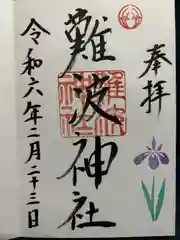 奉拝
難波神社
令和六年二月二十三日